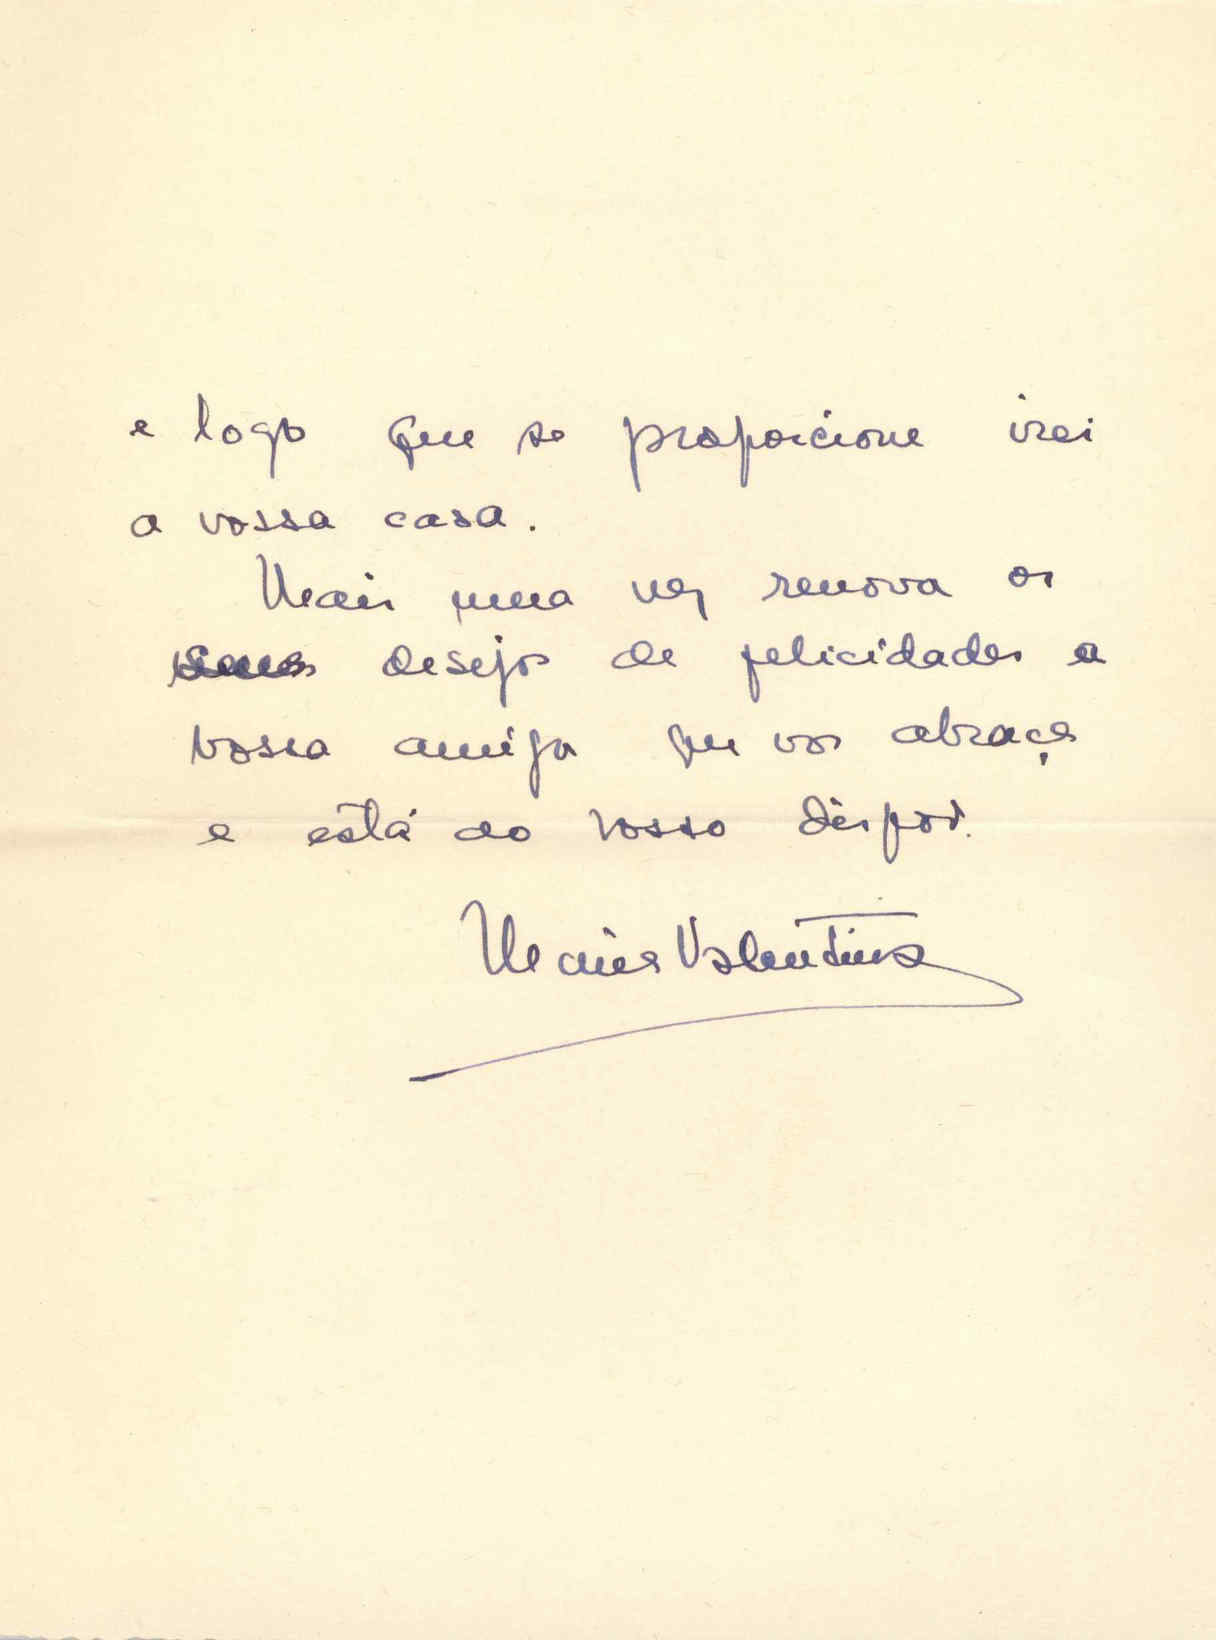 e logo que se proporcione irei
a vossa casa.
Mais uma vez renova os
seus desejos de felicidades a
vossa amiga que vos abraça
e está ao vosso dispôr.
Maria Valentina